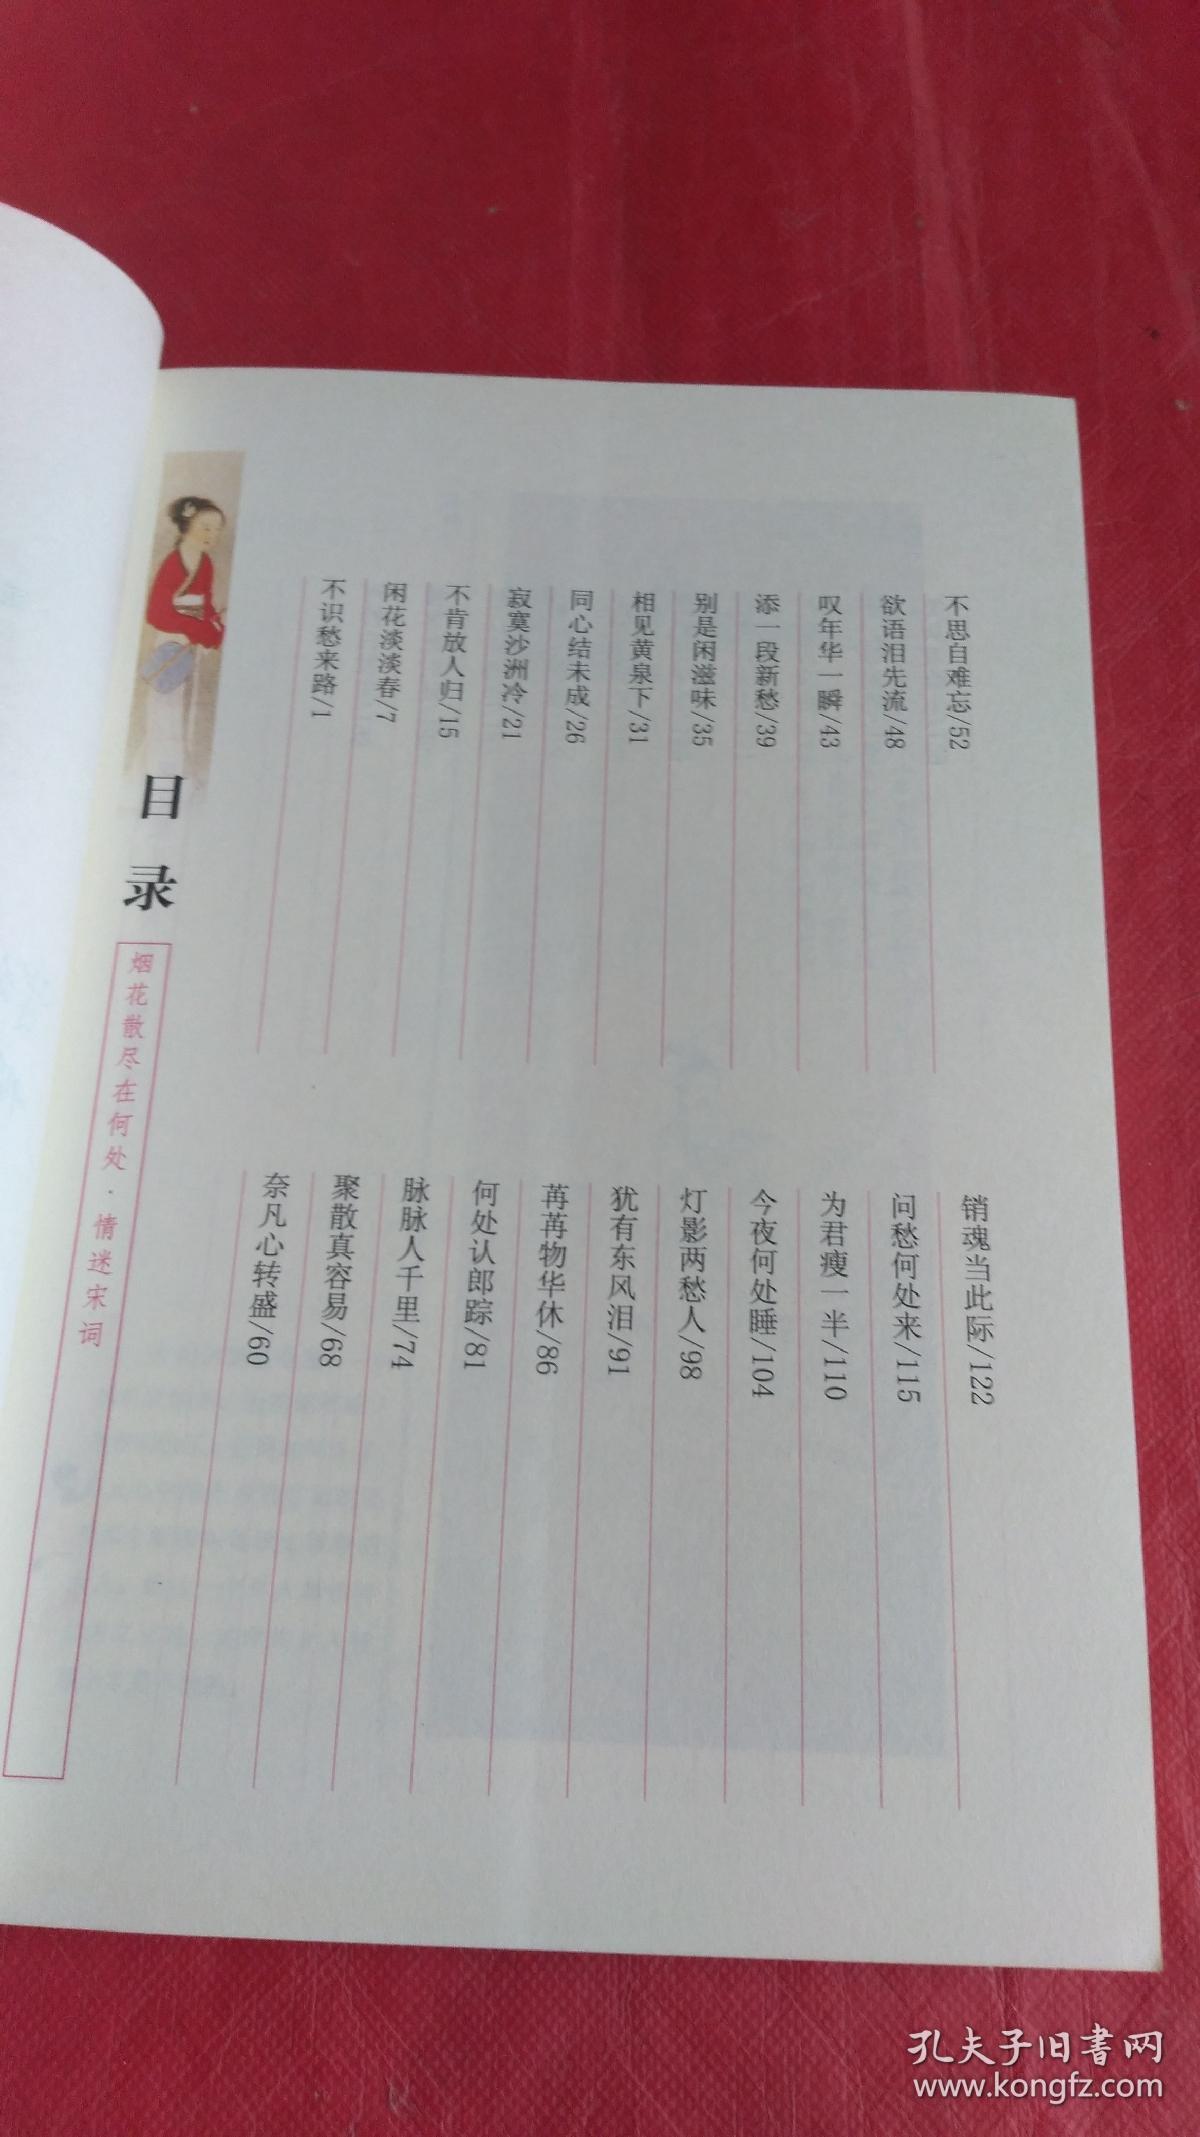 目录
烟花散尽在何处·情迷宋词
不识愁来路/1
闲花淡淡春/7
不肯放人归/15
寂寞沙洲冷/21
同心结未成/26
相见黄泉下/31
别是闲滋味/35
添一段新愁/39
叹年华一瞬/43
欲语泪先流/48
不思自难忘/52
奈凡心转盛/60
聚散真容易/68
脉脉人千里/74
何处认郎踪/81
苒苒物华休/86
犹有东风泪/91
灯影两愁人/98
今夜何处睡/104
为君瘦一半/110
问愁何处来/115
销魂当此际/122
孔夫子旧书网
www.kongfz.com